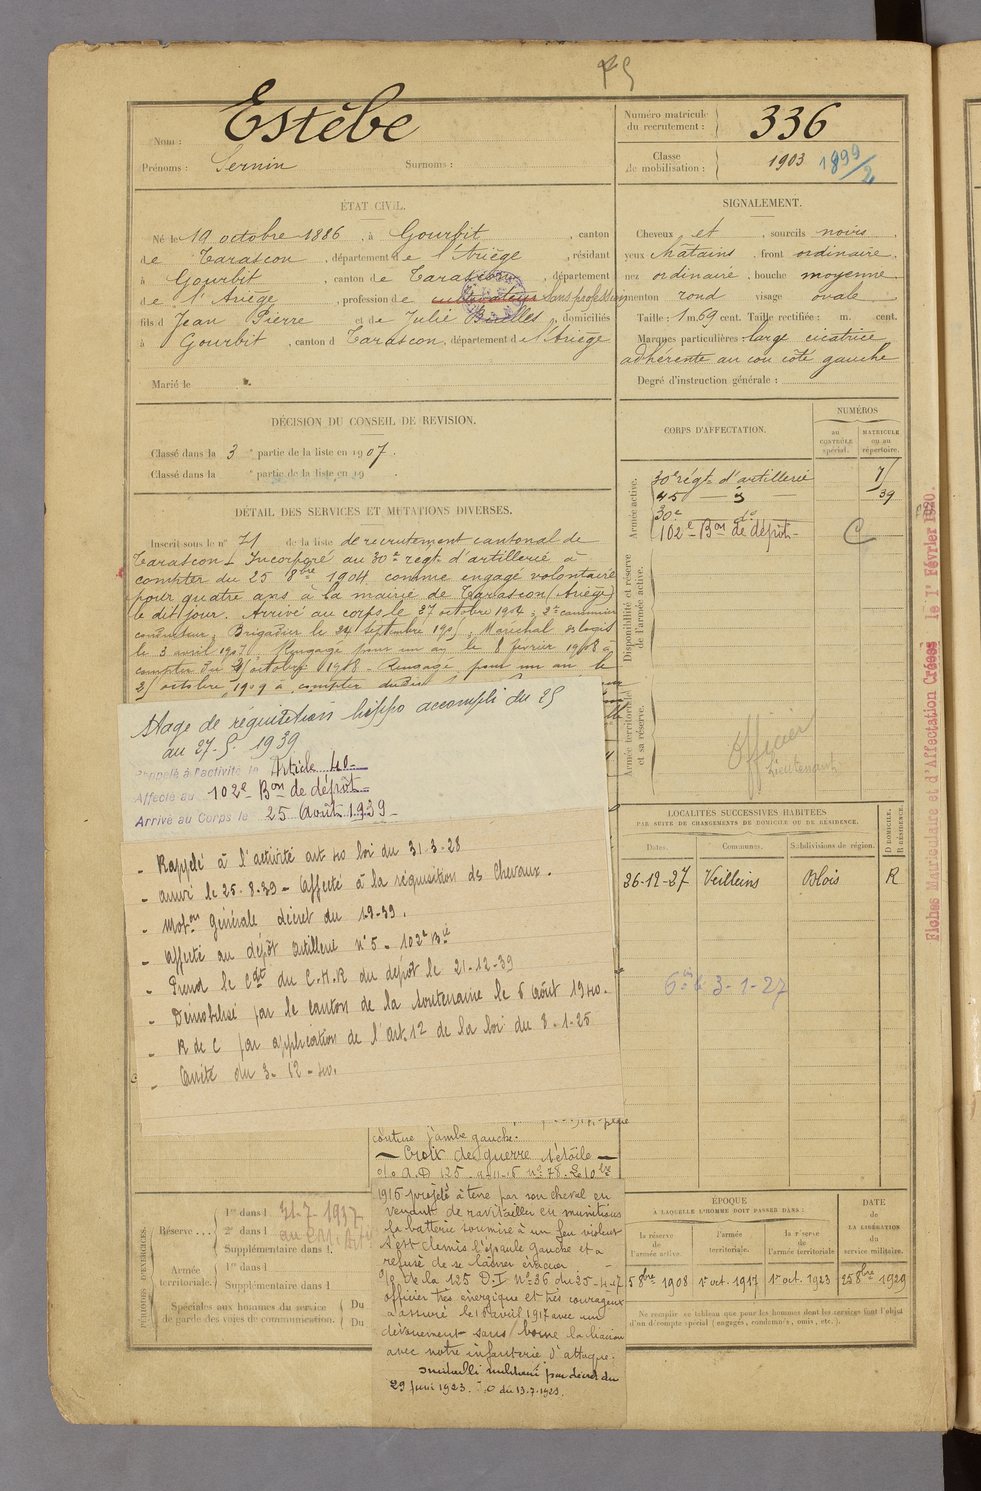 Nom : Estèbe
Prénoms : Sernin Surnoms :
Numéro matricule du recrutement : 336
Classe de mobilisation : 1903 1899/2
ÉTAT CIVIL.
Né le 19 octobre 1886, à Gourbit, canton
de Tarascon, département de l'Ariège, résidant
à Gourbit, canton de Tarascon, département
de l'Ariège, profession de cultivateur Sans profession
fils d Jean Pierre et de Julie, domiciliés
à Gourbit, canton d Tarascon, département d l'Ariège
Marié le
SIGNALEMENT.
Cheveux et, sourcils noirs
yeux chatains, front ordinaire,
nez ordinaire, bouche moyenne
menton rond visage ovale
Taille : 1 m. 69 cent. Taille rectifiée : m. cent.
Marques particulières : large cicatrice
adhérente au cou côté gauche
Degré d'instruction générale :
DÉCISION DU CONSEIL DE REVISION.
Classé dans la 3e partie de la liste en 1907.
Classé dans la e partie de la liste en 19
CORPS D'AFFECTATION.
NUMÉROS
au CONTRÔLE spécial.
MATRICULE ou au répertoire.
Armée active.
30e régt d'artillerie 7
45 39
30e do
102e Bon de dépôt C
Disponibilité et réserve de l'armée active.
Armée territoriale et sa réserve.
Officier
Lieutenant
DÉTAIL DES SERVICES ET MUTATIONS DIVERSES.
Inscrit sous le no 71 de la liste de recrutement cantonal de
Tarascon. Incorporé au 30e régt d'artillerie à
compter du 25 8bre 1904 comme engagé volontaire
pour quatre ans à la mairie de Tarascon (Ariège)
le dit jour. Arrivé au corps le 27 octobre 1904, 2e canonnier
conducteur, Brigadier le 24 septembre 1905, Maréchal des logis
le 3 avril 1907. Rengagé pour un an le 8 février 1908 à
compter du octobre 1908. Rengagé pour un an le
octobre 1909 à compter du
Stage de réquisition hippo accompli du 25
au 27-5-1939
Rappelé à l'activité le Article 40
Affecté au 102e Bon de dépôt
Arrivé au Corps le 25 Août 1939
- Rappelé à l'activité art 40 loi du 31-3-28
- arrivé le 25-8-39 - affecté à la réquisition des Chevaux.
- Mobon Générale décret du 1-9-39.
- affecté au dépôt artillerie n° 5 - 102e Bie
- Prend le Cdt du C.H.R du dépôt le 21-12-39
- Démobilisé par le canton de la Souterraine le 6 août 1940.
- R de C par application de l'art. 12 de la loi du 8-1-25
- Unité du 3-12-40.
LOCALITÉS SUCCESSIVES HABITÉES
PAR SUITE DE CHANGEMENTS DE DOMICILE OU DE RÉSIDENCE.
Dates. Communes. Subdivisions de région. D DOMICILE. R RÉSIDENCE.
26-12-27 Veilleins Blois R
3-1-27
contuse jambe gauche.
Croix de guerre 1 étoile
1916 projeté à terre par son cheval en
venant de ravitailler en munitions
la batterie soumise à un feu violent
s'est démis l'épaule gauche et a
refusé de se laisser évacuer
o/o De la 125 D.I No 36 du 25-4-17
officier très énergique et très courageux
a assuré le 16 avril 1917 avec un
dévouement sans borne la liaison
avec notre infanterie d'attaque.
militaire par décret du
29 juin 1923. O du 13.7.1923.
PÉRIODES D'EXERCICES.
Réserve ... 1re dans l 21-7 1937
2e dans l
Supplémentaire dans l
Armée territoriale. 1re dans l
Supplémentaire dans l
Spéciales aux hommes du service de garde des voies de communication. Du
Du
ÉPOQUE
A LAQUELLE L'HOMME DOIT PASSER DANS :
la réserve de l'armée active.
l'armée territoriale.
la réserve de l'armée territoriale
DATE de LA LIBÉRATION du service militaire.
5 8bre 1908 1er oct. 1917 1er oct. 1923 25 8bre 1929
Ne remplir ce tableau que pour les hommes dont les services font l'objet
d'un décompte spécial (engagés, condamnés, omis, etc.).
Fiches Matriculaire et d'Affectation Créées le 1er Février 1920.